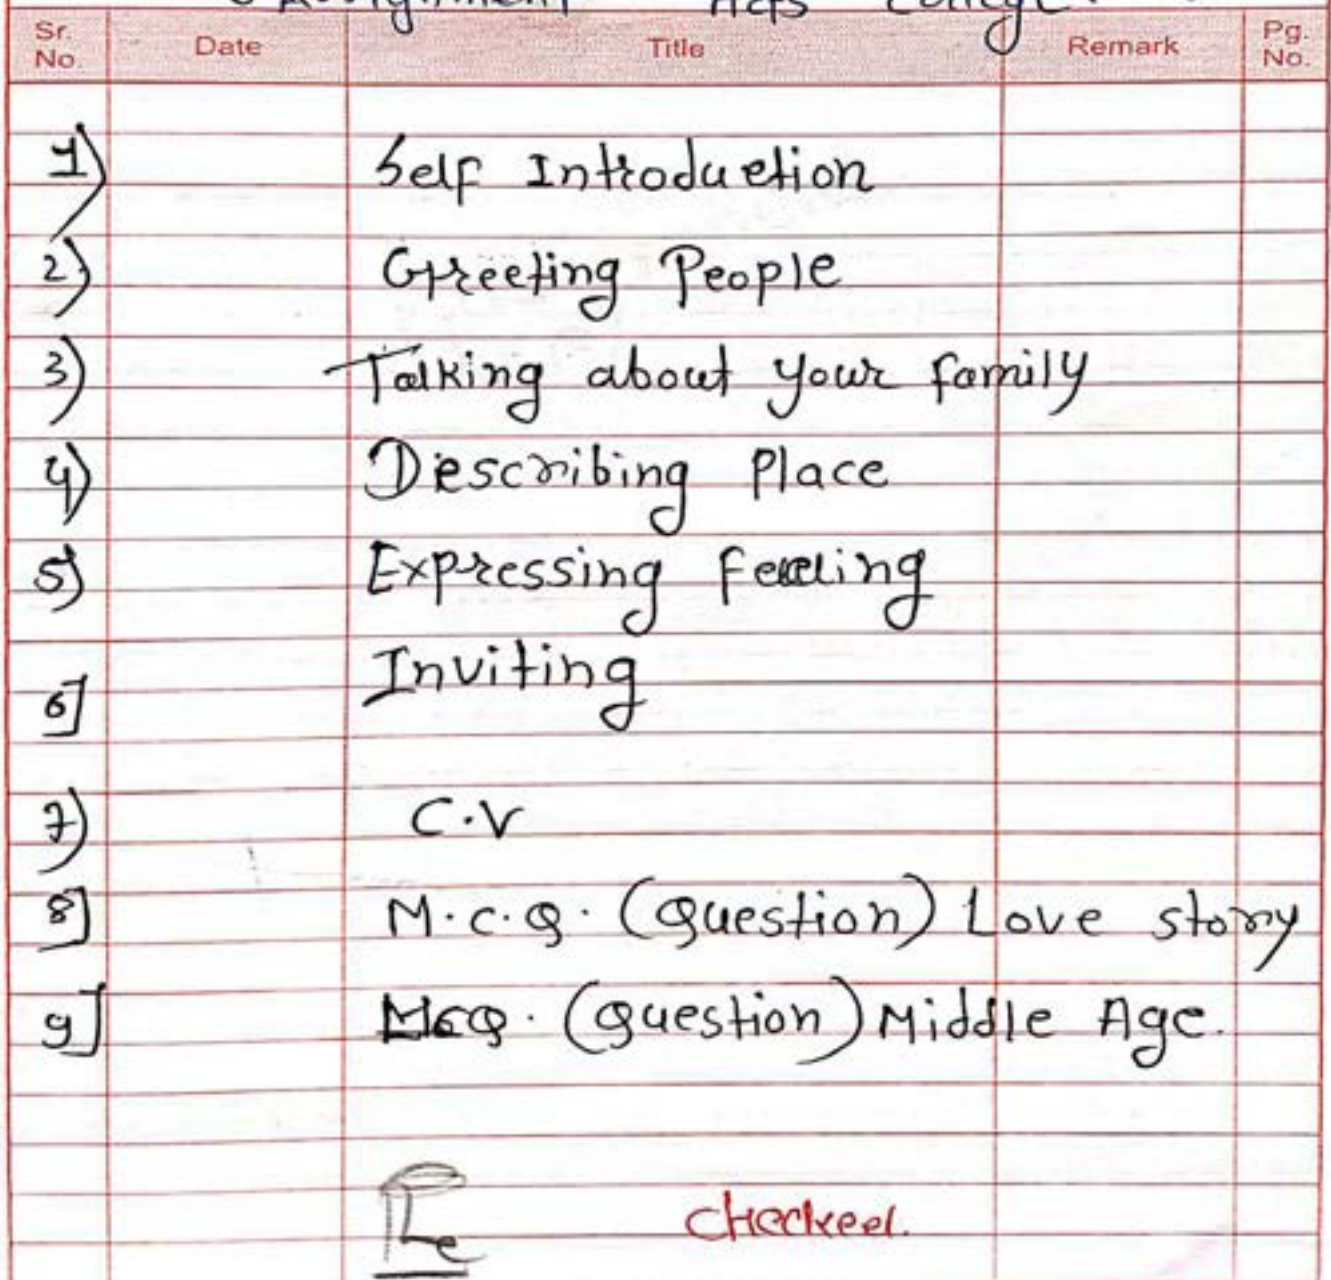 Assignment Arts College.
Sr. No. Date Title Remark Pg. No.
1) Self Introduction
2) Greeting People
3) Talking about your family
4) Describing Place
5) Expressing feeling
6] Inviting
7) C.V
8] M.C.Q. (Question) Love story
9] MCQ. (Question) Middle Age.
Checked.